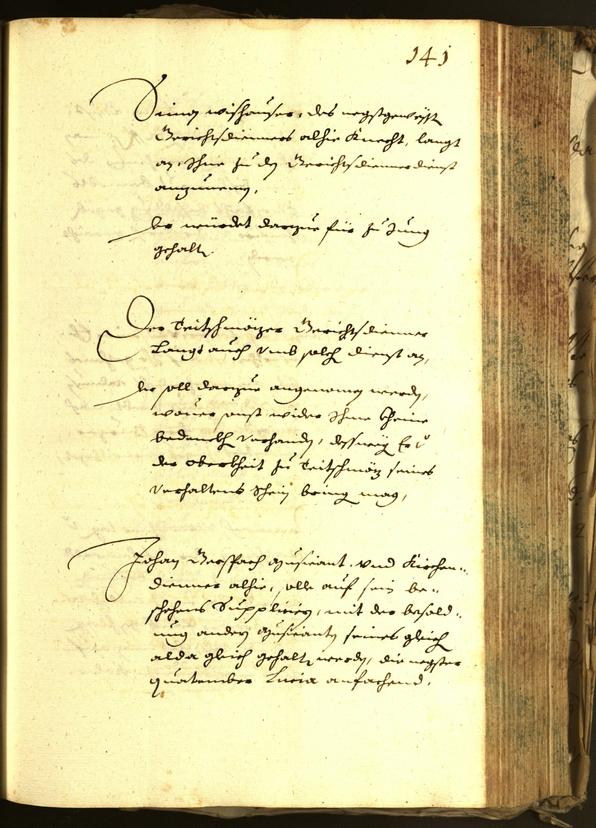 141
Simon wishauser, des negstgewesten
Gerichtsdienners alhie Knecht, langt
an, Ihne zu den Gerichtsdiennerdienst
anzunemen,
Er würdet darzue für zu Jung
gehalten
Der Teitschmözer Gerichtsdienner
Langt auch vmb solchen dienst an,
der soll darzue angenomen werden,
wouer sonst wider Ihne kheine
bedenckhen verhanden, dessweg Er
der oberkheit zu Teitschmötz seines
verhaltens Schein bring mag,
Johan Gerspach Musicant, vnd Kirchen-
dienner alhie, solle auf sein be-
schehens Suppliciern, mit der besold-
ung andern Musicanten seines gleich
alda gleich gehalten werden, die negster
quatember Lucia anfachend,